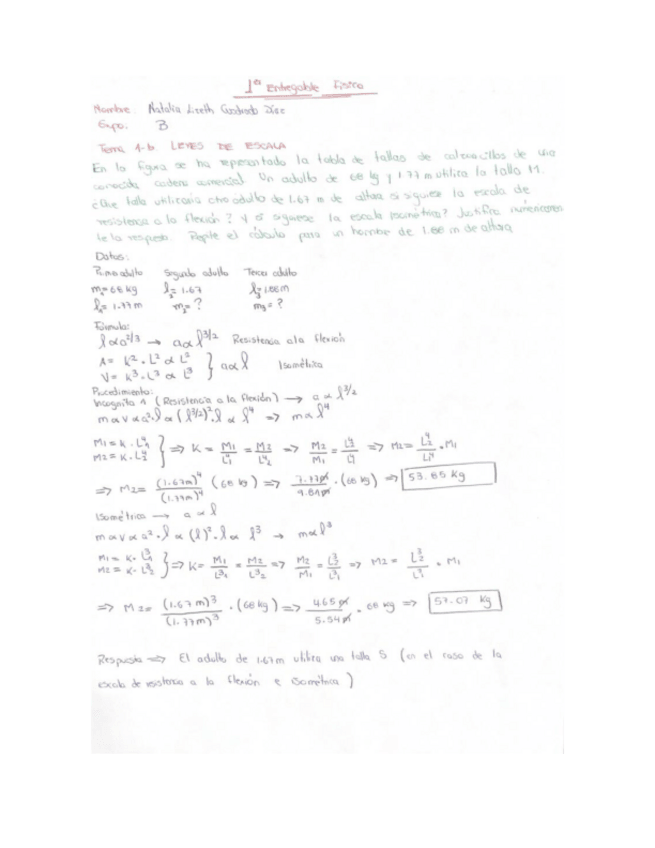 1er Entregable Física
Nombre: Natalia Lizeth
Grupo: B
Tema 1-b LEYES DE ESCALA
En la figura se ha representado la tabla de tallas de calzoncillos de una
conocida cadena comercial. Un adulto de 68 kg y 1.77 m utiliza la talla M.
¿Que talla utilizaria otro adulto de 1.67 m de altura si siguiese la escala de
resistencia a la flexión? Y si siguiese la escala isométrica? Justifica numéricamen
te la respuesta. Repite el cálculo para un hombre de 1.88 m de altura
Datos:
Primer adulto Segundo adulto Tercer adulto
m₁=68 kg l₂= 1.67 l₃=1.88m
l₁= 1.77m m₂= ? m₃= ?
Fórmula:
l∝a^2/3 → a∝l^3/2 Resistencia a la flexión
A= K²·L² ∝ L²
V= K³·L³ ∝ L³ } a∝l Isométrica
Procedimiento:
Incognita 1 (Resistencia a la flexión) → a ∝ l^3/2
m∝v∝a²·l∝(l^3/2)²·l∝l⁴ => m∝l⁴
M₁=K·L₁⁴
M₂=K·L₂⁴ } => K= M₁/L₁⁴ = M₂/L₂⁴ => M₂/M₁ = L₂⁴/L₁⁴ => M₂= L₂⁴/L₁⁴ · M₁
=> M₂= (1.67m)⁴/(1.77m)⁴ (68 kg) => 7.77m/9.81m · (68 kg) => 53.85 kg
Isométrica → a∝l
m∝v∝a²·l∝(l)²·l∝l³ → m∝l³
M₁= K·L₁³
M₂= K·L₂³ } => K= M₁/L₁³ = M₂/L₂³ => M₂/M₁ = L₂³/L₁³ => M₂= L₂³/L₁³ · M₁
=> M₂= (1.67m)³/(1.77m)³ · (68 kg) => 4.65m/5.54m · 68 kg => 57.07 kg
Respuesta => El adulto de 1.67m utiliza una talla S (en el caso de la
escala de resistencia a la flexión e isométrica)